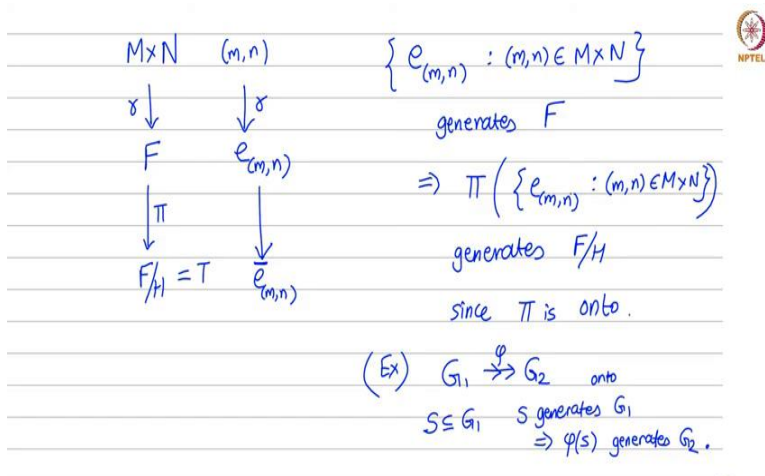 M×N (m,n)
γ γ
F e_(m,n)
π
F/H = T ē_(m,n)
{ e_(m,n) : (m,n) ∈ M×N }
generates F
⇒ π ( { e_(m,n) : (m,n) ∈ M×N } )
generates F/H
since π is onto.
(Ex) G₁ φ↠ G₂ onto
S ⊆ G₁ S generates G₁
⇒ φ(S) generates G₂.
NPTEL